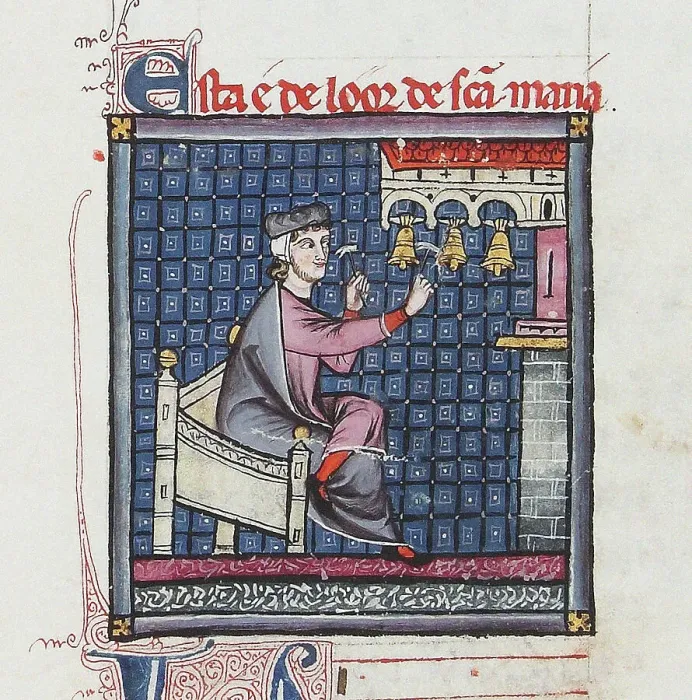 Esta é de loor de ſcã maria.